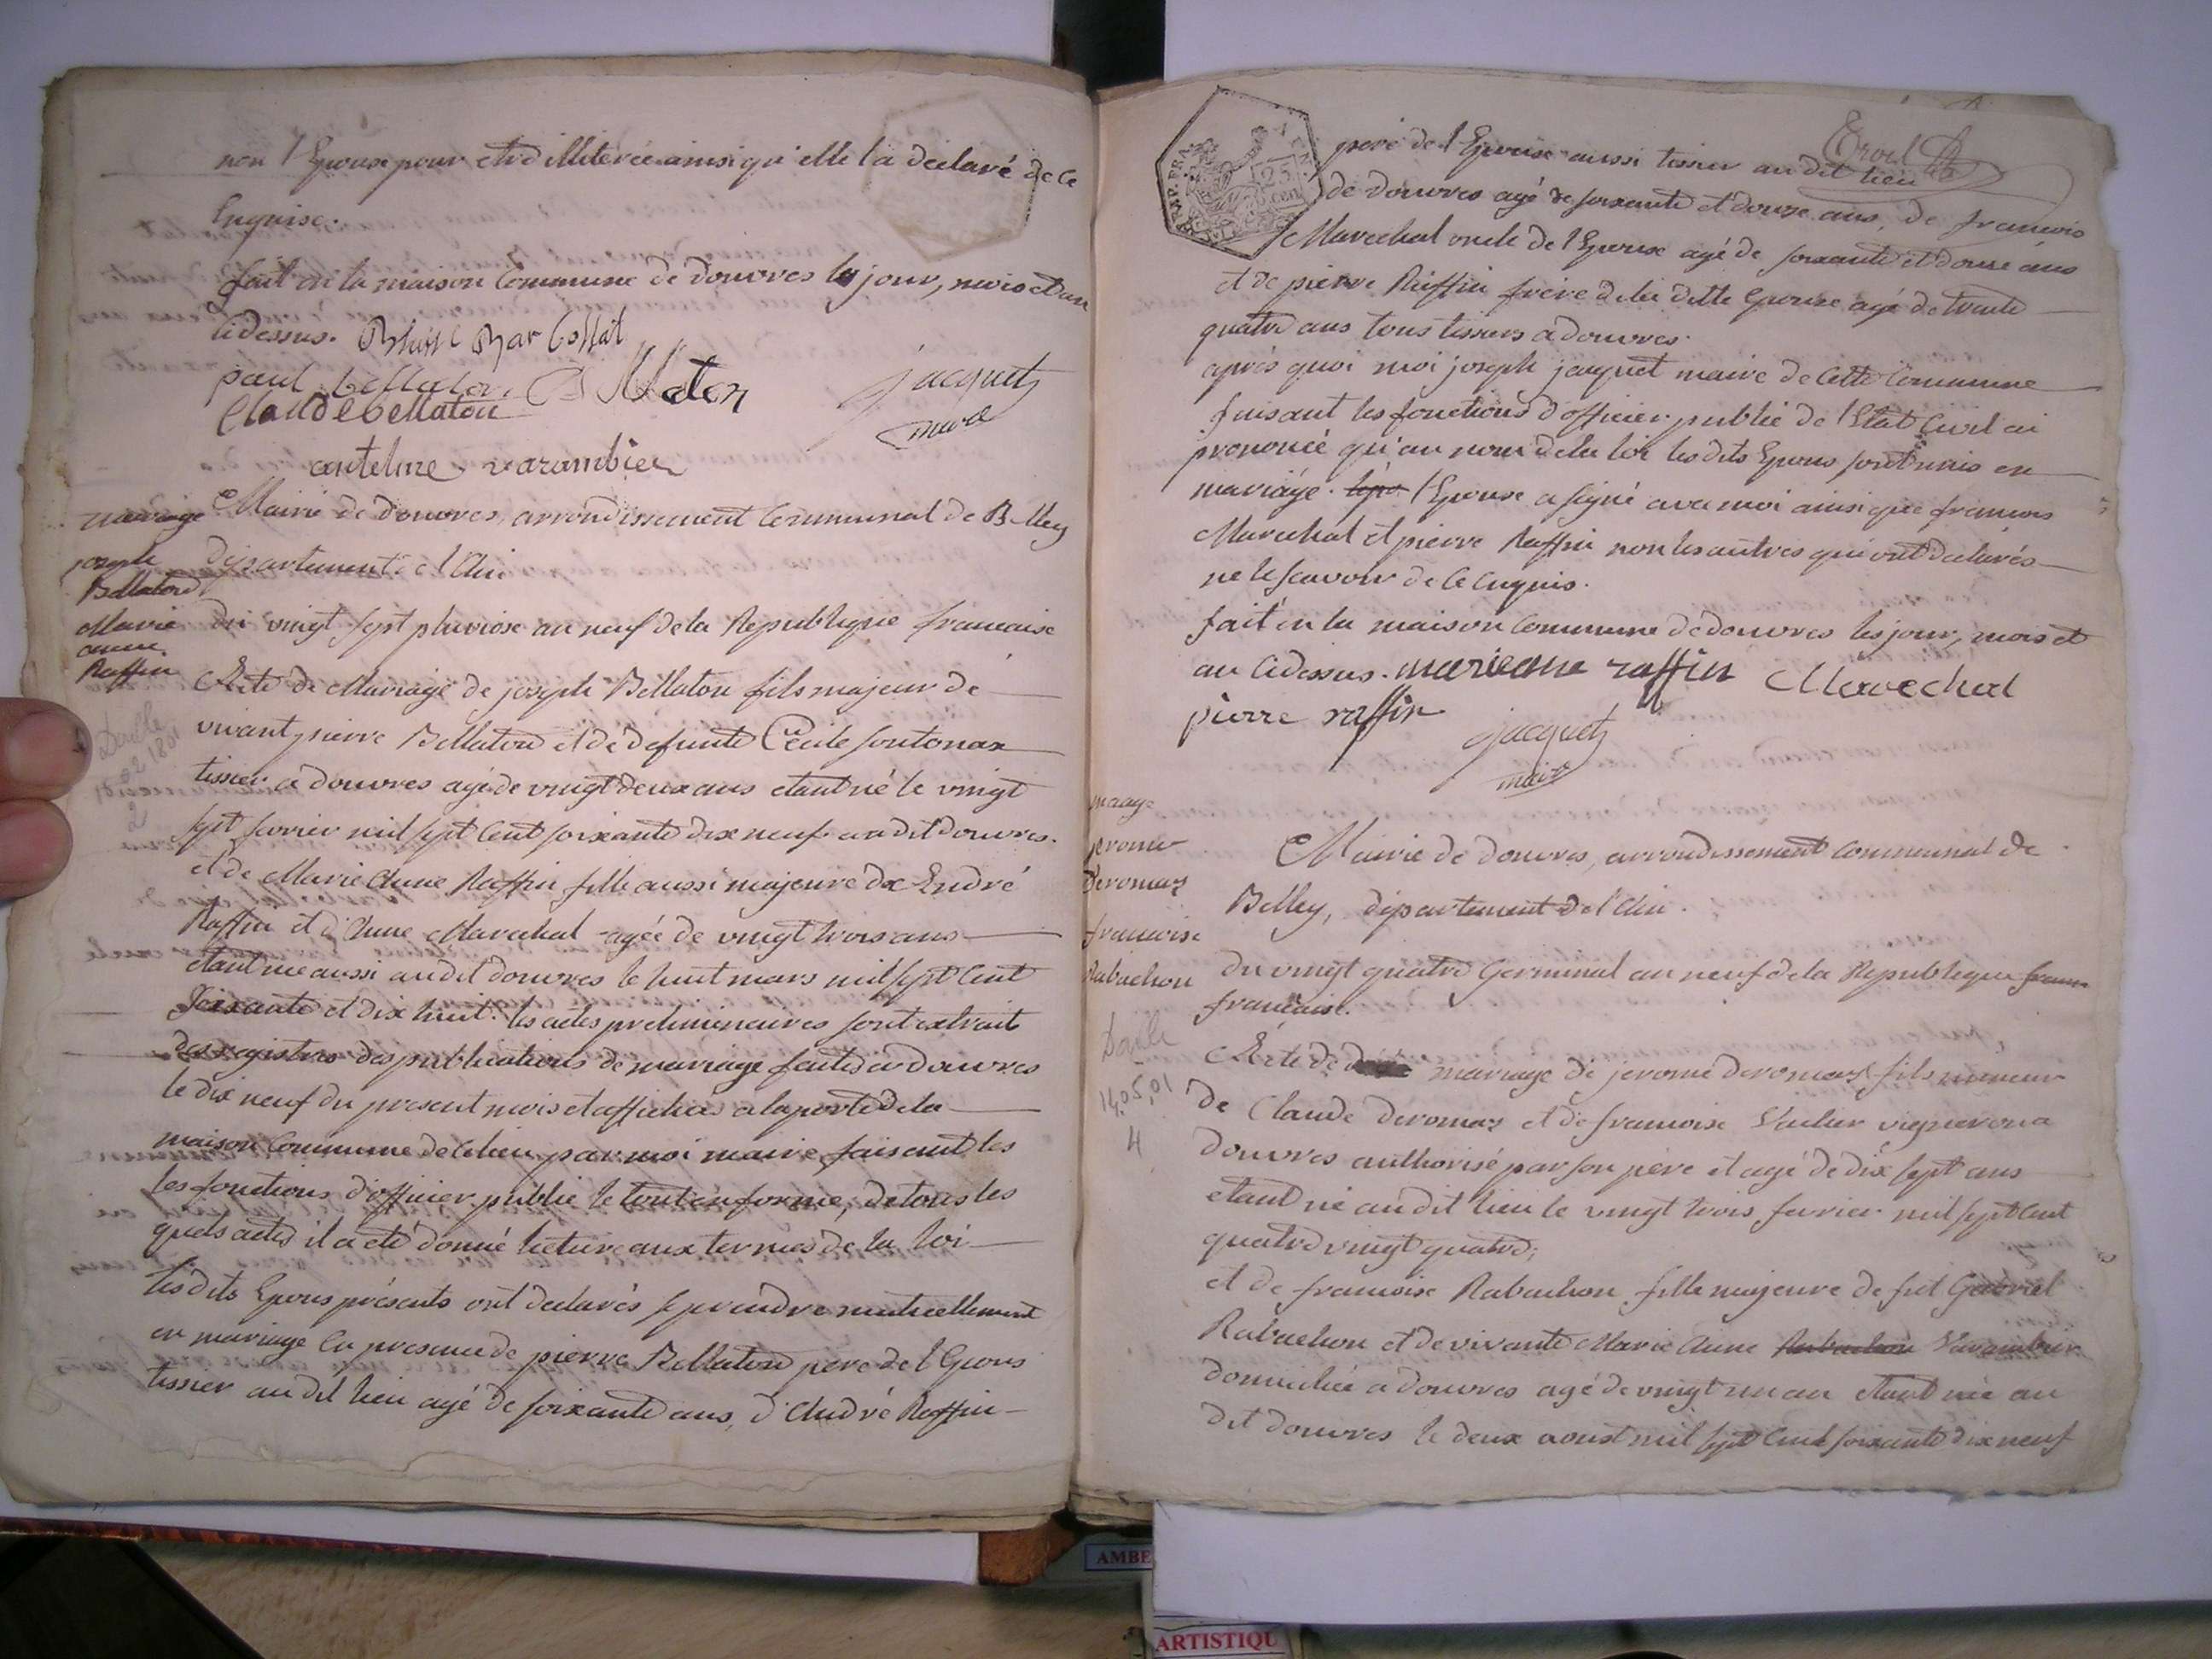 non l'Epouse pour etre illiterée ainsi qu'elle l'a déclaré de ce
Enquise.
fait en la maison Commune de douvres les jour, mois et an
Cidessus.
paul bellaton
Claude bellaton
jacquet
maire
antelme varambier
mariage
joseph
Bellaton
Marie
anne
Raffin
Mairie de douvres, arrondissement Communal de Belley
département de l'Ain
du vingt sept pluviose an neuf de la Republique francaise
Acte de Mariage de joseph Bellaton fils majeur de
vivant pierre Bellaton et de défunte Cécile fontonax
tissier a douvres agé de vingt deux ans etant né le vingt
sept fevrier mil sept Cent soixante dix neuf au dit douvres.
et de Marie Anne Raffin fille aussi majeure de André
Raffin et d'Anne Marechal agée de vingt trois ans
etant née aussi au dit douvres le huit mars mil sept Cent
soixante et dix huit. les actes preliminaires sont extrait
des registres des publications de mariage faites a douvres
le dix neuf du present mois et affichés a la porte de la
maison Commune de ce lieu par moi maire faisant les
les fonctions d'officier public le tout en forme, de tous les
quels actes il a eté donné lecture aux termes de la loi
les dits Epoux présents ont declarés se prendre mutuellement
en mariage En presence de pierre Bellaton pere de l'Epoux
tissier au dit lieu agé de soixante ans, d'André Raffin
pere de l'Epouse aussi tissier au dit lieu
de douvres agé de soixante et douze ans, de francois
Marechal oncle de l'Epouse agé de soixante et douze ans
et de pierre Raffin frere de la ditte Epouse agé de trente
quatre ans tous tissiers a douvres.
après quoi moi joseph jacquet maire de cette Commune
faisant les fonctions d'officier public de l'Etat Civil ai
prononcé qu'au nom de la loi les dits Epoux sont unis en
mariage. l'Epouse a signé avec moi ainsi que francois
Marechal et pierre Raffin non les autres qui ont declarés
ne le scavoir de ce enquis.
fait en la maison Commune de douvres les jour, mois et
an Cidessus. marieane raffin Marechal
pierre raffin
jacquet
maire
mariage
jerome
deromas
francoise
Rabachon
Mairie de douvres, arrondissement Communal de
Belley, département de l'Ain.
du vingt quatre Germinal an neuf de la Republique
francaise.
14,05,01
4
Acte de mariage de jerome deromas fils mineur
de Claude deromas et de francoise vigneron a
douvres authorisé par son père et agé de dix sept ans
etant né au dit lieu le vingt trois fevrier mil sept Cent
quatre vingt quatre;
et de francoise Rabachon fille majeure de fut Gabriel
Rabachon et de vivante Marie Anne Rabachon Varambier
domiciliée a douvres agé de vingt un an etant née au
dit douvres le deux aoust mil sept Cent soixante dix neuf
AMBE
ARTISTIQU